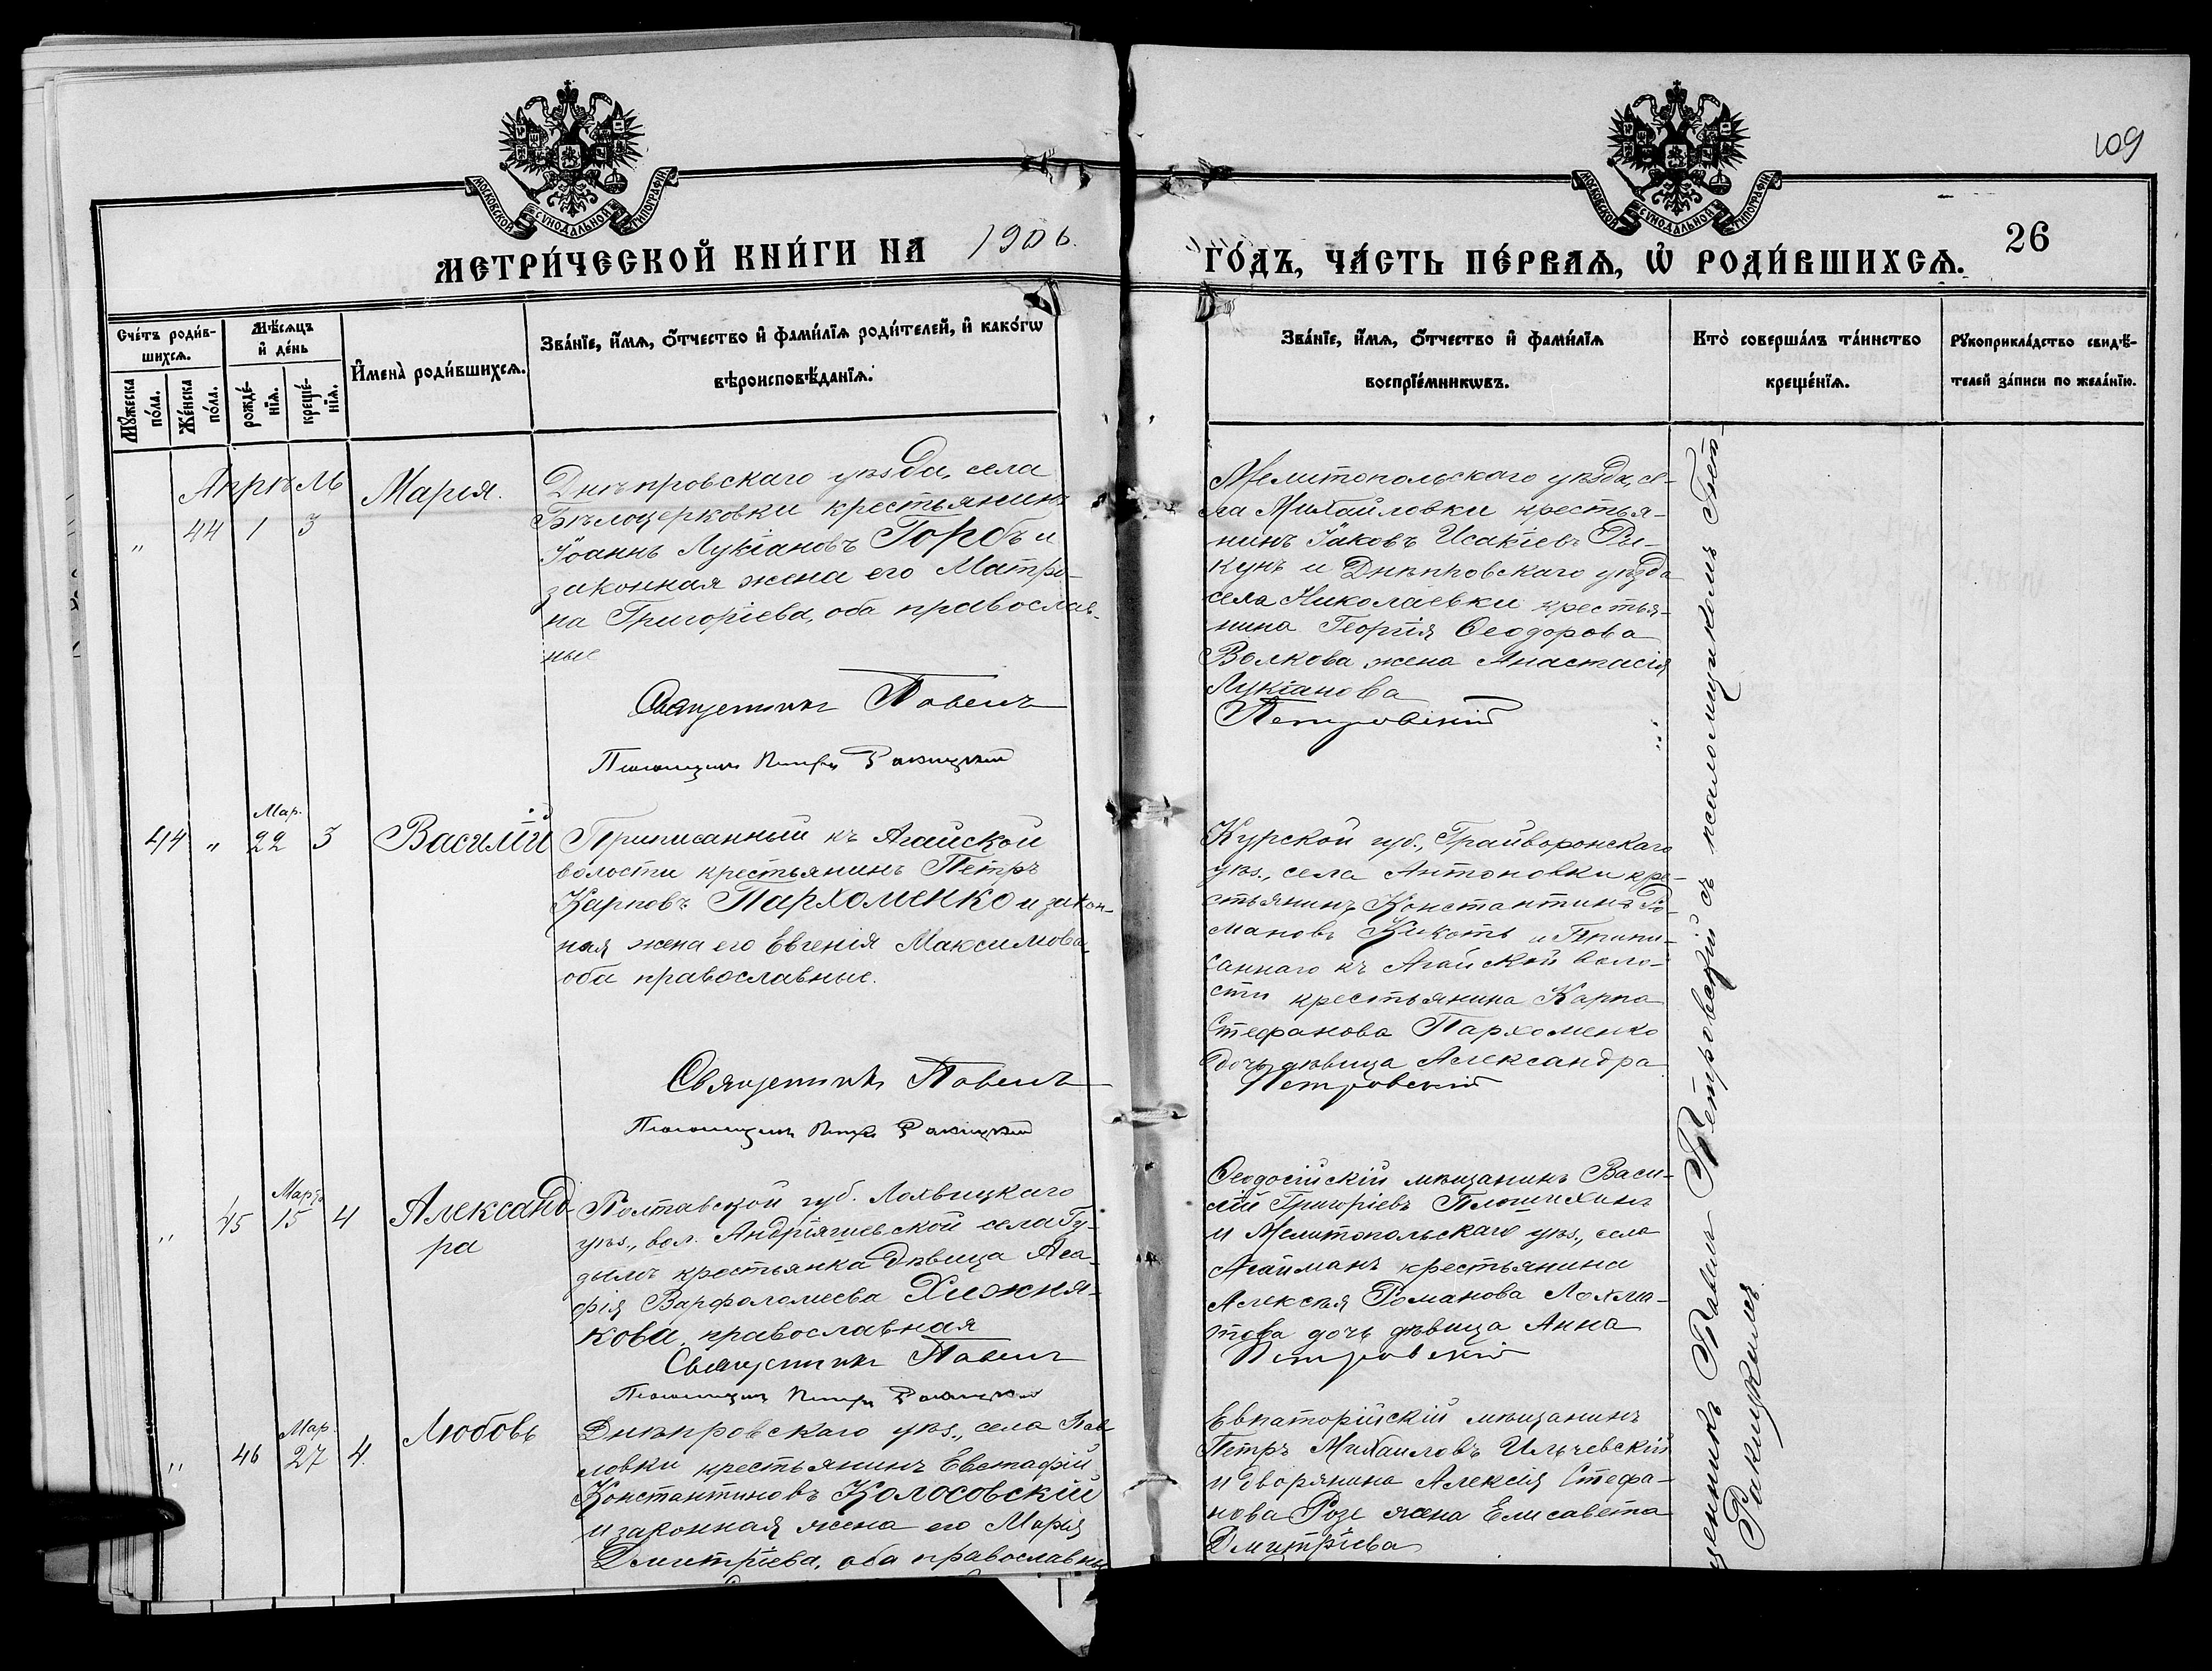 109
МОСКОВСКОЙ СѴНОДАЛЬНОЙ ТИПОГРАФІИ
МОСКОВСКОЙ СѴНОДАЛЬНОЙ ТИПОГРАФІИ
МЕТРИ́ЧЕСКОЙ КНИ́ГИ НА 1906.
ГО́ДЪ, ЧА́СТЬ ПЕ́РВАѦ, Ѡ҆ РОДИ́ВШИХСѦ.
26
Сче́тъ роди́в-
шихсѧ.
Мꙋ́жеска
по́ла.
Же́нска
по́ла.
Мѣ́сѧцъ
и҆ де́нь
рожде́-
нїѧ.
креще́-
нїѧ.
И҆мена̀ роди́вшихсѧ.
Зва́нїе, и҆́мѧ, ѻ҆́тчество и҆ фами́лїѧ роди́телей, и҆ како́гѡ
вѣроисповѣ́данїѧ.
Зва́нїе, и҆́мѧ, ѻ҆́тчество и҆ фами́лїѧ
воспрїе́мникѡвъ.
Кто̀ соверша́лъ та́инство
креще́нїѧ.
Рꙋкоприкла́дство свидѣ́-
телей за́писи по жела́нїю.
Апрѣль
„ 44 1 3
Марія.
Днѣпровскаго уѣзда, села
Бѣлоцерковки крестьянинъ
Іоаннъ Лукіановъ Горбъ и
законная жена его Матро-
на Григоріева, оба православ-
ные
Священникъ Павелъ
Псаломщикъ Петръ Ракицкій
Мелитопольскаго уѣзда, се-
ла Михайловки крестья-
нинъ Іаковъ Исакіевъ Ры-
кунъ и Днѣпровскаго уѣзда
села Николаевки крестья-
нина Георгія Ѳеодорова
Волкова жена Анастасія
Лукіанова
Петровскій
44 „ Мар. 22 3
Василій
Приписанный къ Агайской
волости крестьянинъ Петръ
Карповъ Пархоменко и закон-
ная жена его Евгенія Максимова,
оба православные.
Священникъ Павелъ
Псаломщикъ Петръ Ракицкій
Курской губ., Грайворонскаго
уѣз., села Антоновки кре-
стьянинъ Константинъ Ро-
мановъ Кикоть и Припи-
саннаго къ Агайской воло-
сти крестьянина Карпа
Стефанова Пархоменко
дочь дѣвица Александра
Петровскій
„ 45 Марта 15 4
Александ-
ра
Полтавской губ. Лохвицкаго
уѣз., вол. Андріяшевской села Гу-
дымъ крестьянка дѣвица Ага-
фія Варфоломеева Хижня-
кова, православная
Священникъ Павелъ
Псаломщикъ Петръ Ракицкій
Ѳеодосійскій мѣщанинъ Васи-
лій Григоріевъ
и Мелитопольскаго уѣз., села
Агайманъ крестьянина
Алексѣя Романова Лохма-
това дочь дѣвица Анна
Петровскій
„ 46 Мар. 27 4.
Любовь
Днѣпровскаго уѣз., села Пав-
ловки крестьянинъ Евстафій
Константиновъ Колосовскій
и законная жена его Марія
Дмитріева, оба православны
Евпаторійскій мѣщанинъ
Петръ Михаиловъ Ильчевскій
и дворянина Алексія Стефа-
нова Розе жена Елисавета
Дмитріева
щенникъ Павелъ Петровскій съ псаломщикомъ Пет-
Ракицкимъ